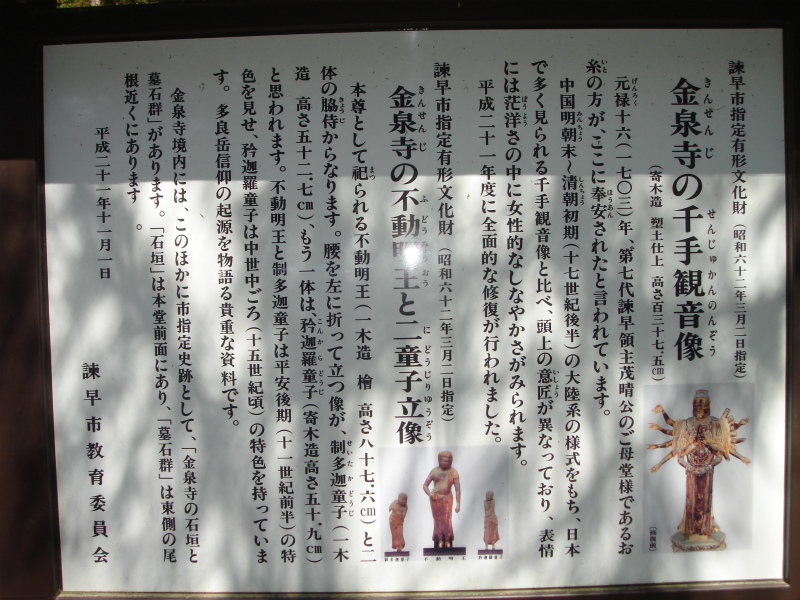 諫早市指定有形文化財（昭和六十二年三月二日指定）
きんせんじ せんじゅかんのんぞう
金泉寺の千手観音像
（寄木造 塑土仕上 高さ百三十七・五㎝）
げんろく
元禄十六（一七〇三）年、第七代諫早領主茂晴公のご母堂様であるお
いと ほうあん
糸の方が、ここに奉安されたと言われています。
みんちょう しんちょう
中国明朝末～清朝初期（十七世紀後半）の大陸系の様式をもち、日本
いしょう
で多く見られる千手観音像と比べ、頭上の意匠が異なっており、表情
ぼうよう
には茫洋さの中に女性的なしなやかさがみられます。
平成二十一年度に全面的な修復が行われました。
（修復前）
諫早市指定有形文化財（昭和六十二年三月二日指定）
きんせんじ ふどうみょうおう にどうじりゅうぞう
金泉寺の不動明王と二童子立像
まつ
本尊として祀られる不動明王（一木造 檜 高さ八十七・六㎝）と二
きょうじ せいたかどうじ
体の脇侍からなります。腰を左に折って立つ像が、制多迦童子（一木
こんからどうじ
造 高さ五十二・七㎝）、もう一体は、矜迦羅童子（寄木造高さ五十・九㎝）
と思われます。不動明王と制多迦童子は平安後期（十一世紀前半）の特
色を見せ、矜迦羅童子は中世中ごろ（十五世紀頃）の特色を持っていま
す。多良岳信仰の起源を物語る貴重な資料です。
不動明王
金泉寺境内には、このほかに市指定史跡として、「金泉寺の石垣と
墓石群」があります。「石垣」は本堂前面にあり、「墓石群」は東側の尾
根近くにあります。
平成二十一年十一月一日
諫早市教育委員会